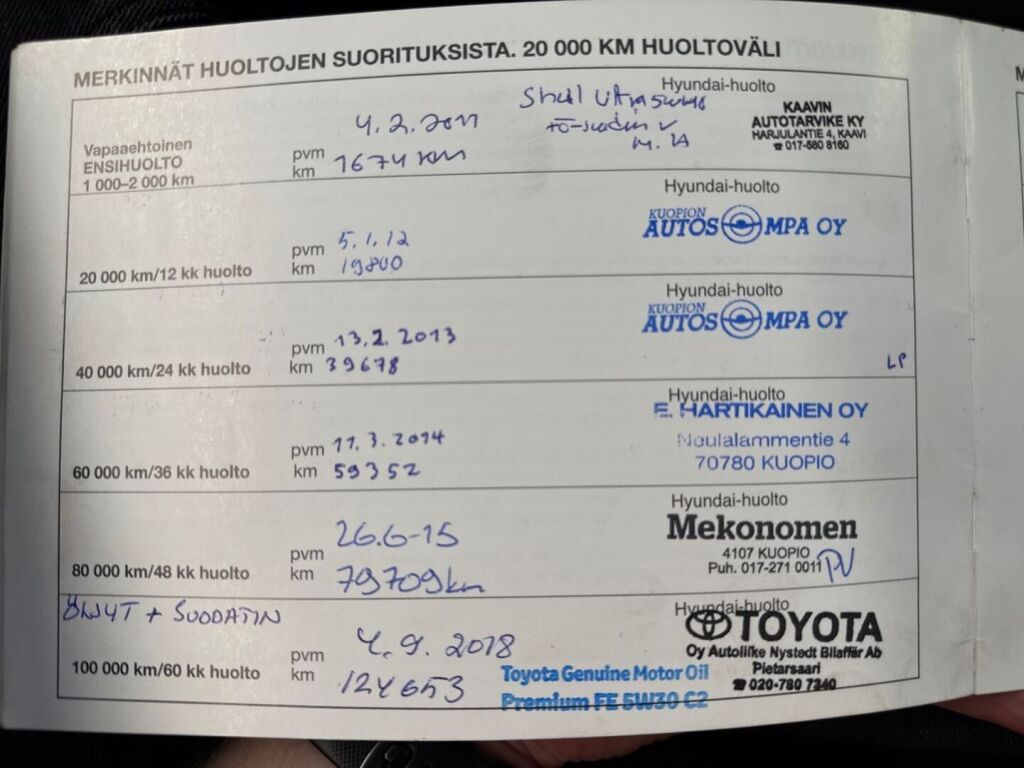 MERKINNÄT HUOLTOJEN SUORITUKSISTA. 20 000 KM HUOLTOVÄLI
Vapaaehtoinen
ENSIHUOLTO
1 000–2 000 km
pvm 4.2.2011
km 1674 km
Shell
Hyundai-huolto
KAAVIN
AUTOTARVIKE KY
HARJULANTIE 4, KAAVI
☎ 017-680 8160
20 000 km/12 kk huolto
pvm 5.1.12
km 19800
Hyundai-huolto
KUOPION
AUTOSOMPA OY
40 000 km/24 kk huolto
pvm 13.2.2013
km 39678
Hyundai-huolto
KUOPION
AUTOSOMPA OY
LP
60 000 km/36 kk huolto
pvm 11.3.2014
km 59352
Hyundai-huolto
E. HARTIKAINEN OY
Neulalammentie 4
70780 KUOPIO
80 000 km/48 kk huolto
pvm 26.6-15
km 79709km
Hyundai-huolto
Mekonomen
4107 KUOPIO
Puh. 017-271 0011
ÖLJYT + SUODATIN
100 000 km/60 kk huolto
pvm 4.9.2018
km 124653
Toyota Genuine Motor Oil
Premium FE 5W30 C2
Hyundai-huolto
TOYOTA
Oy Autoliike Nystedt Bilaffär Ab
Pietarsaari
☎ 020-780 7340
M